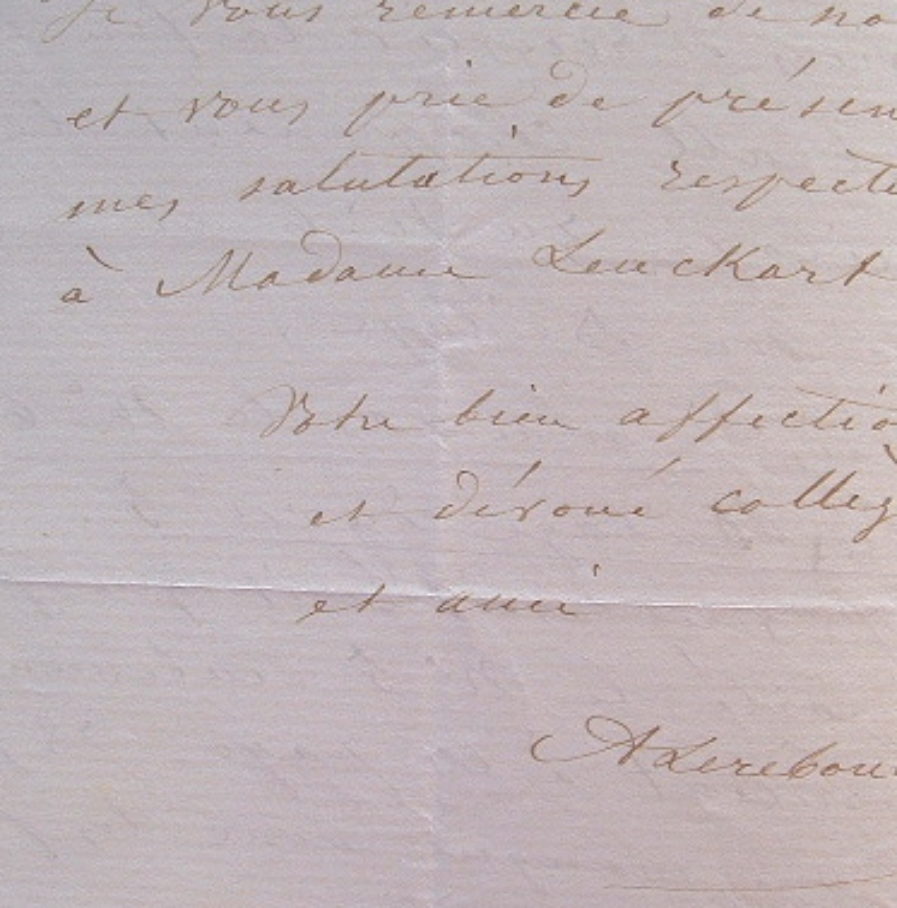 Je vous remercie de no
et vous prie de présen
mes salutations respecte
à Madame Leuckart
Votre bien affectio
et dévoué collèg
et ami
ALerebou